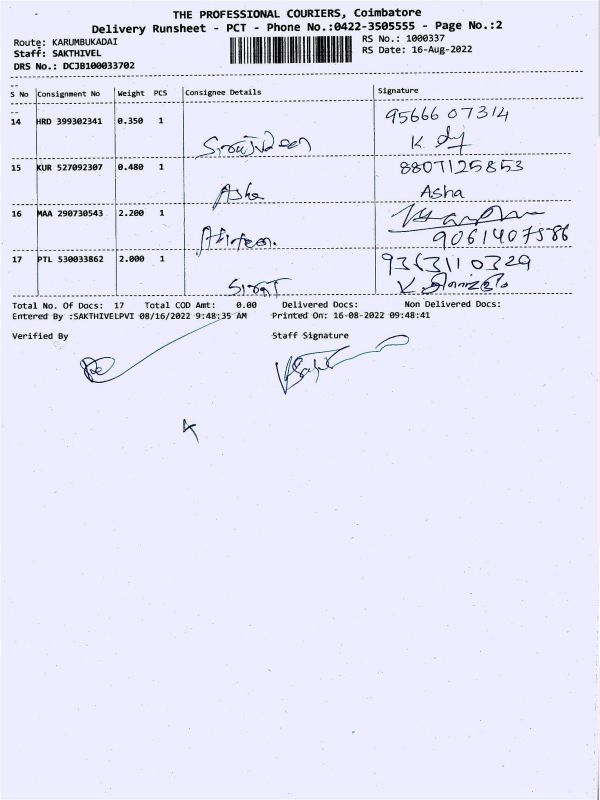 THE PROFESSIONAL COURIERS, Coimbatore
Delivery Runsheet - PCT - Phone No.:0422-3505555 - Page No.:2
Route: KARUMBUKADAI
RS No.: 1000337
Staff: SAKTHIVEL
RS Date: 16-Aug-2022
DRS No.: DCJB100033702
S No Consignment No Weight PCS Consignee Details Signature
14 HRD 399302341 0.350 1 95666 07314
Sirajudeen K
15 KUR 527092307 0.480 1 8807125853
Asha Asha
16 MAA 290730543 2.200 1
9061407586
17 PTL 530033862 2.000 1 9363110329
Siraj K
Total No. Of Docs: 17 Total COD Amt: 0.00 Delivered Docs: Non Delivered Docs:
Entered By :SAKTHIVELPVI 08/16/2022 9:48:35 AM Printed On: 16-08-2022 09:48:41
Verified By Staff Signature